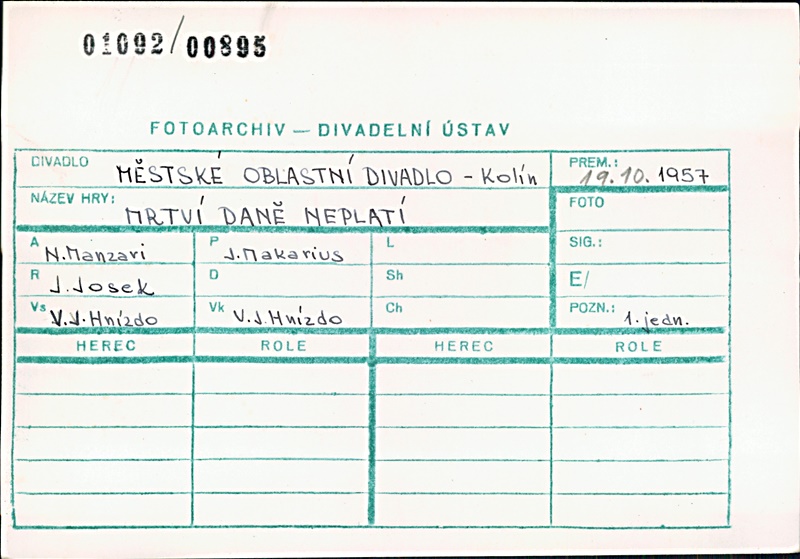 01092/00895
FOTOARCHIV — DIVADELNÍ ÚSTAV
DIVADLO MĚSTSKÉ OBLASTNÍ DIVADLO - Kolín PREM.: 19.10.1957
NÁZEV HRY: MRTVÍ DANĚ NEPLATÍ FOTO
A N.Manzari P J.Makarius L SIG.:
R J.Josek D Sh E/
Vs V.J.Hnízdo Vk V.J.Hnízdo Ch POZN.: 1.jedn.
HEREC ROLE HEREC ROLE